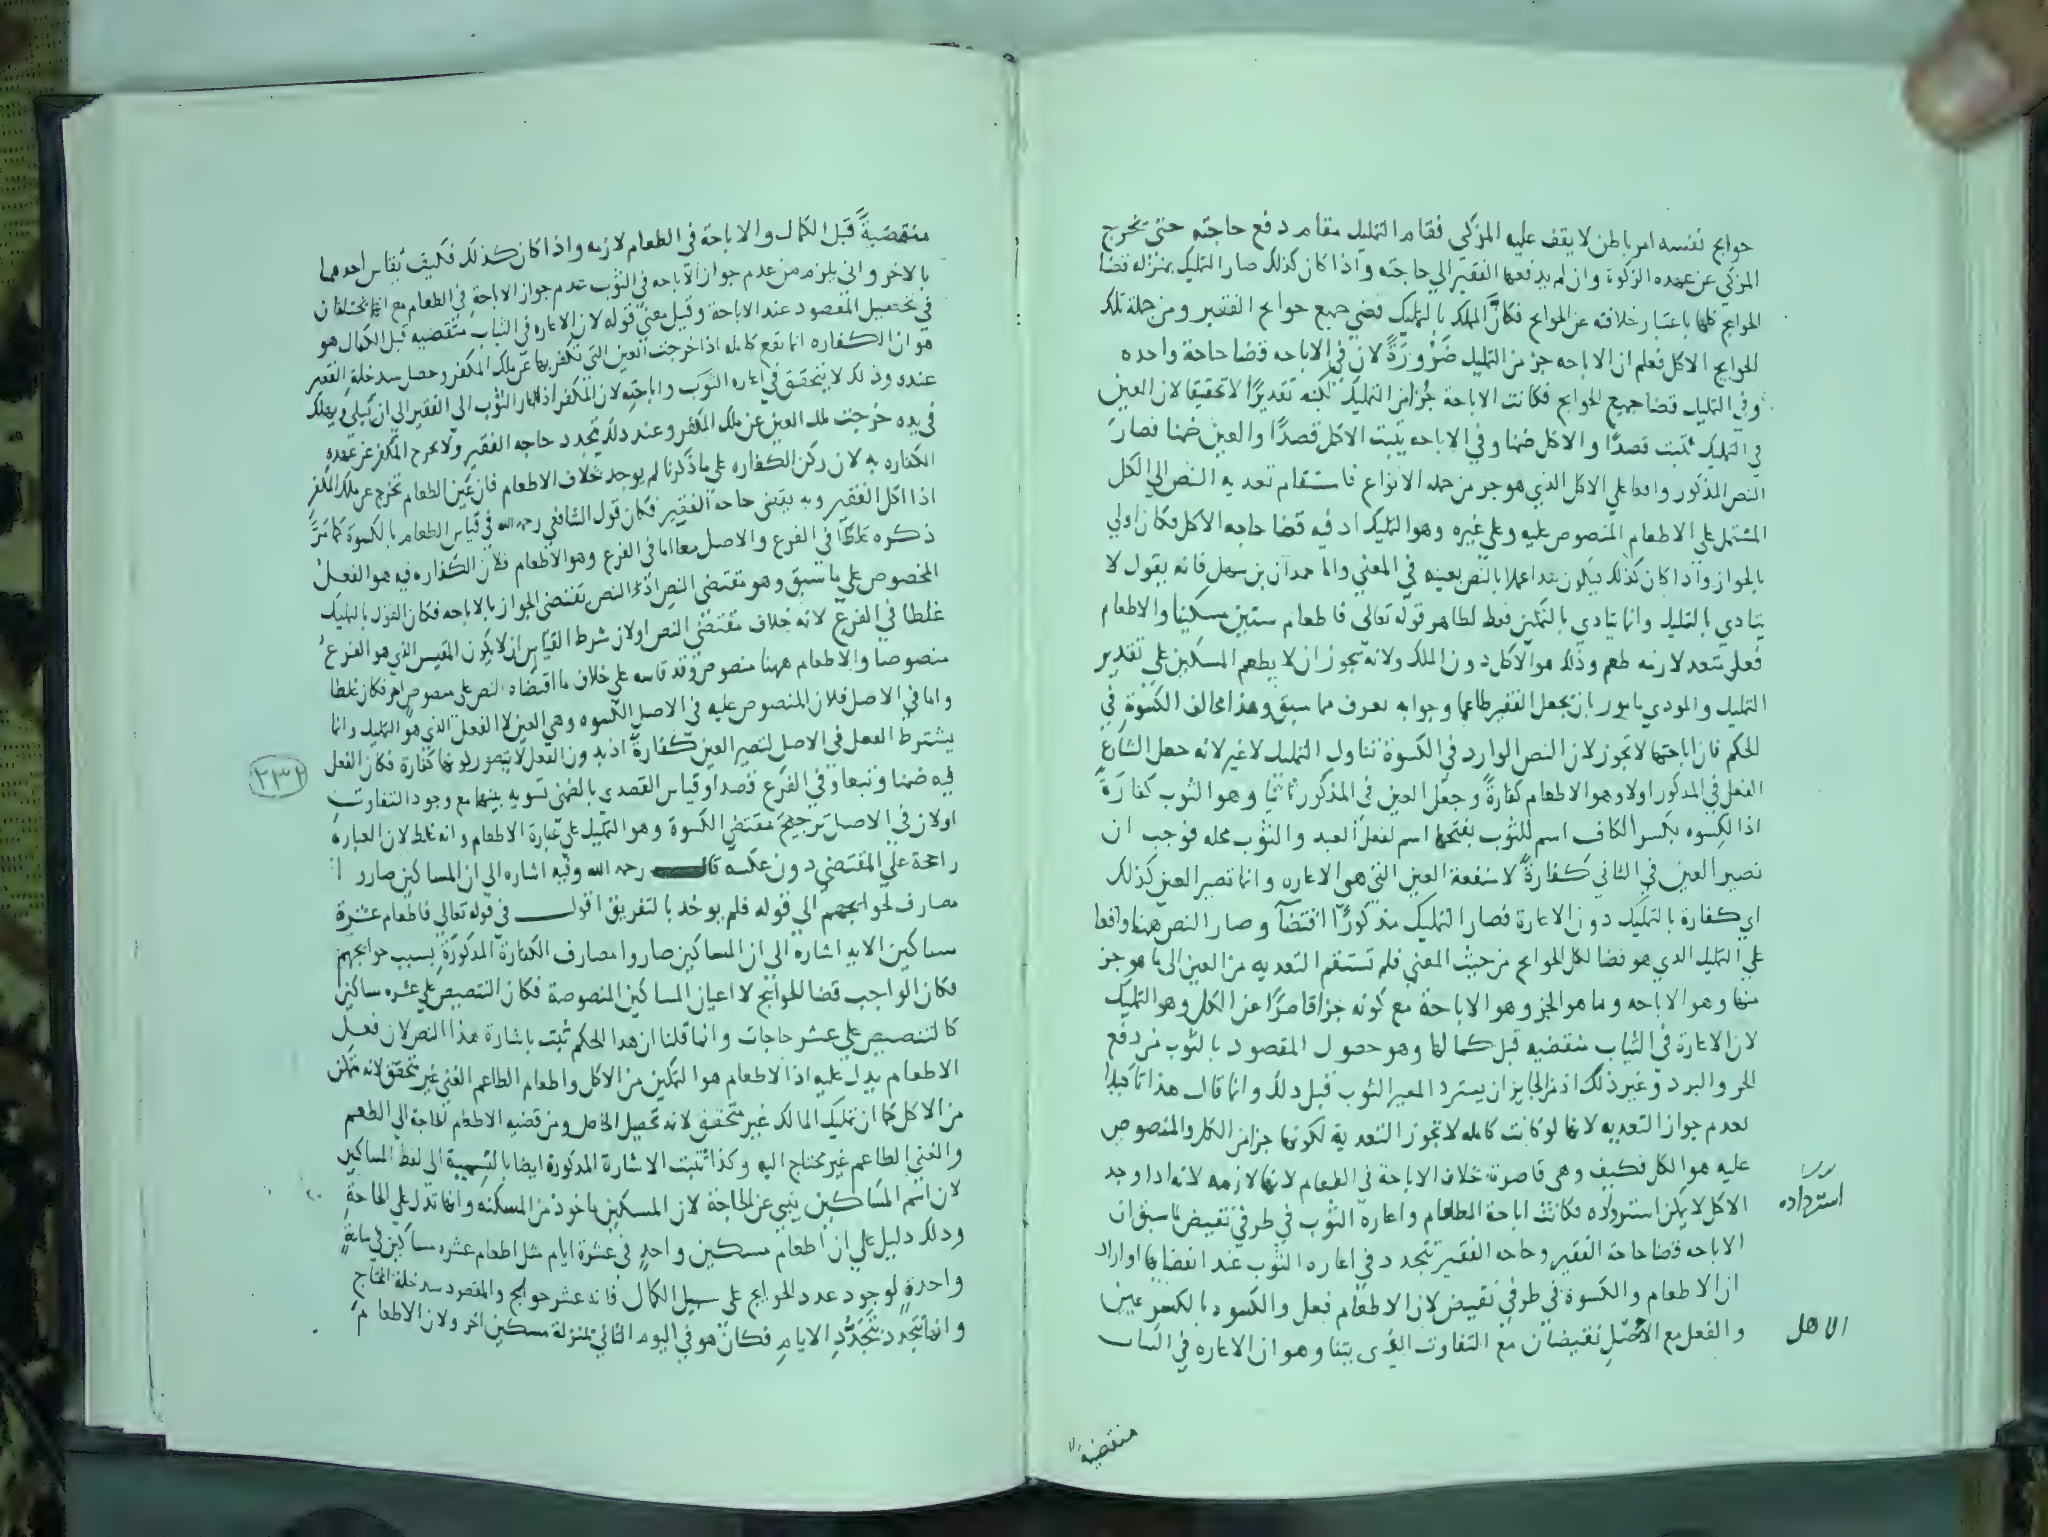 حوايج نفسه امر باطن لا يقف عليه المزكي فقام التمليك مقام دفع حاجته حتى تخرج
المزكي عن عهده الزكوة وان لم يدفعها الفقير الي حاجته واذا كان كذلك صار التمليك بمنزله قضا
الحوايج كلها باعتبار خلافته عن الحوايج فكانّ الملك بالتمليك قضي جميع حوايج الفقير ومن جملة تلك
الحوايج الاكل فعلم ان الاباحه جز من التمليك ضَرُورَةً لان في الاباحه قضا حاجة واحده
وفي التمليك قضا جميع الحوايج فكانت الاباحة جُزا من التمليك لكنه تقديرًا لا تحقيقا لان العين
في التمليك تثبت قصدًا والاكل ضمنا وفي الاباحه يثبت الاكل قصدًا والعين ضمنا فصار
النص المذكور واقعا علي الاكل الذي هو جز من جمله الانواع فاستقام تعديه النص الي الكل
المشتمل علي الاطعام المنصوص عليه وعلي غيره وهو التمليك اذ فيه قضا حاجه الاكل فكان اولي
بالجواز واذا كان كذلك فيكون هذا عملا بالنص بعينه في المعني واما حمدان بن سهل فانه يقول لا
يتادي بالتمليك وانما يتادي بالتمكين فقط لظاهر قوله تعالى فاطعام ستين مسكينا والاطعام
فعل متعد لازمه طعم وذلك هو الاكل دون الملك ولانه يجوز ان لا يطعم المسكين علي تقدير
التمليك والمودي مامور بان يجعل الفقير طاعما وجوابه يعرف مما سبق وهذا مخالف الكسْوة في
الحكم فان اباحتها لا تجوز لان النص الوارد في الكسوة تناول التمليك لا غير لانه جعل الشارع
الفعل في المذكور اولا وهو الاطعام كفارةً وجعل العين في المذكور ثانيا وهو الثوب كفارةً
اذ الكِسوه بكسر الكاف اسم للثوب بفتحها اسم لفعل العبد والثوب محله فوجب ان
تصير العين في الثاني كفارةً لا منفعة العين التي هي الاعاره وانما تصير العين كذلك
اي كفارة بالتمليك دون الاعارة فصار التمليك مذكورًا اقتضآ وصار النص ههنا واقعا
علي التمليك الذي هو قضا لكل الحوايج من حيث المعني فلم تستقم التعديه من العين الى ما هو جز
منها وهو الاباحه وما هو الجز وهو الاباحة مع كونه جزا قاصرًا عن الكل وهو التمليك
لان الاعارة في الثياب منقضيه قبل كمالها وهو حصول المقصود بالثوب من دفع
الحر والبرد وغير ذلك اذ من الجايز ان يسترد المعير الثوب قبل ذلك وانما قال هذا تاكيدا
لعدم جواز التعديه لانها لو كانت كامله لا تجوز التعدية لكونها جزا من الكل والمنصوص
عليه هو الكل فكيف وهى قاصرة بخلاف الاباحة في الطعام لانها لازمه لانه اذا وجد
الاكل لا يمكن استرداده فكانت اباحة الطعام واعارة الثوب في طرفي نقيض لما سبق ان
استرداده
الاباحه قضا حاجة الفقير وحاجه الفقير تتجدد في اعاره الثوب عند انقضايها او اراد
ان الاطعام والكسوة في طرفي نقيض لان الاطعام فعل والكسوه بالكسر عين
والفعل مع الاصل نقيضان مع التفاوت الذي بينا وهو ان الاعاره في الثياب
منقضية
منقضيةً قبل الكمال والاباحة في الطعام لازمه واذا كان كذلك فكيف يقاس احدهما
بالاخر واني يلزم من عدم جواز الاباحه في الثوب عدم جواز الاباحة في الطعام مع انهما مختلفان
في تحصيل المقصود عند الاباحة وقيل معني قوله لان الاعاره في الثياب منقضيه قبل الكمال هو
هو ان الكفاره انما تقع كامله اذا خرجت العين التي تكفر بها عن ملك المكفر وحصل سد خلة الفقير
عنده وذلك لا يتحقق في اعاره الثوب واباحته لان المكفر اذا اعار الثوب الى الفقير الي ان يبلي ويهلك
في يده خرجت تلك العين عن ملك المكفر وعند ذلك تتجدد حاجه الفقير ولا يخرج المكفر عن عهده
الكفاره به لان ركن الكفاره على ما ذكرنا لم يوجد بخلاف الاطعام فان عين الطعام تخرج عن ملك المكفر
اذا اكل الفقير وبه يقتضي حاجة الفقير فكان قول الشافعي رحمه الله في قياس الطعام بالكسوة كما مرَّ
ذكره غلطًا في الفرع والاصل معا اما في الفرع وهو الاطعام فلان الكفاره فيه هو الفعل
المخصوص علي ما سبق وهو مقتضي النص اذ النص يقتضي الجواز بالاباحه فكان القول بالتمليك
غلطا في الفرع لانه خلاف مقتضى النص اولان شرط القياس ان لا يكون المقيس الذي هو الفرع
منصوصا والاطعام ههنا منصوص وقد قاسه علي خلاف ما اقتضاه النص علي منصوص اخر فكان غلطا
واما في الاصل فلان المنصوص عليه في الاصل الكسوه وهي العين لا الفعل الذي هو التمليك وانما
يشترط الفعل في الاصل لتصير العين كفارةً اذ بدون الفعل لا يتصور كونها كفارة فكان الفعل
فيه ضمنا وتبعا وفي الفرع قصدا وقياس القصدي بالضمني تسويه بينهما مع وجود التفاوت
٢٣٢
اولان في الاصل ترجيحَ مقتضي الكسوة وهو التمليك علي عبارة الاطعام وانه غلط لان العبارة
راجحة علي المقتضي دون عكسه قال رحمه الله وفيه اشاره الي ان المساكين صاروا
مصارف لحوايجهم الى قوله فلم يوخذ بالتفريق اقول في قوله تعالي فاطعام عشرة
مساكين الايه اشاره الى ان المساكين صاروا مصارف الكفارة المذكورة بسبب حوايجهم
فكان الواجب قضا للحوايج لا اعيان المساكين المنصوصة فكان التنصيص علي عشره مساكين
كالتنصيص علي عشر حاجات وانما قلنا ان هذا الحكم ثبت باشارة هذا النص لان فعل
الاطعام يدل عليه اذ الاطعام هو التمكين من الاكل واطعام الطاعم الغني غير متحقق لانه متمكن
من الاكل كما ان تمليك المالك غير متحقق لانه تحصيل الحاصل ومن قضيه الاطعام الحاجة الي الطعم
والغني الطاعم غير محتاج اليه وكذا تثبت الاشارة المذكورة ايضا بالتسمية الى لفظ المساكين
لان اسم المساكين ينبي عن الحاجة لان المسكين ماخوذ من المسكنه وانها تدل علي الحاجة
وذلك دليل علي ان اطعام مسكين واحدٍ في عشرة ايام مثل اطعام عشره مساكين في ساعةٍ
واحدةٍ لوجود عدد الحوايج علي سبيل الكمال فانه عشر حوايج والمقصود سد خلة المحتاج
وانها تتجدد بتَجَدُّد الايام فكان هو في اليوم الثاني بمنزلة مسكين اخر ولان الاطعام